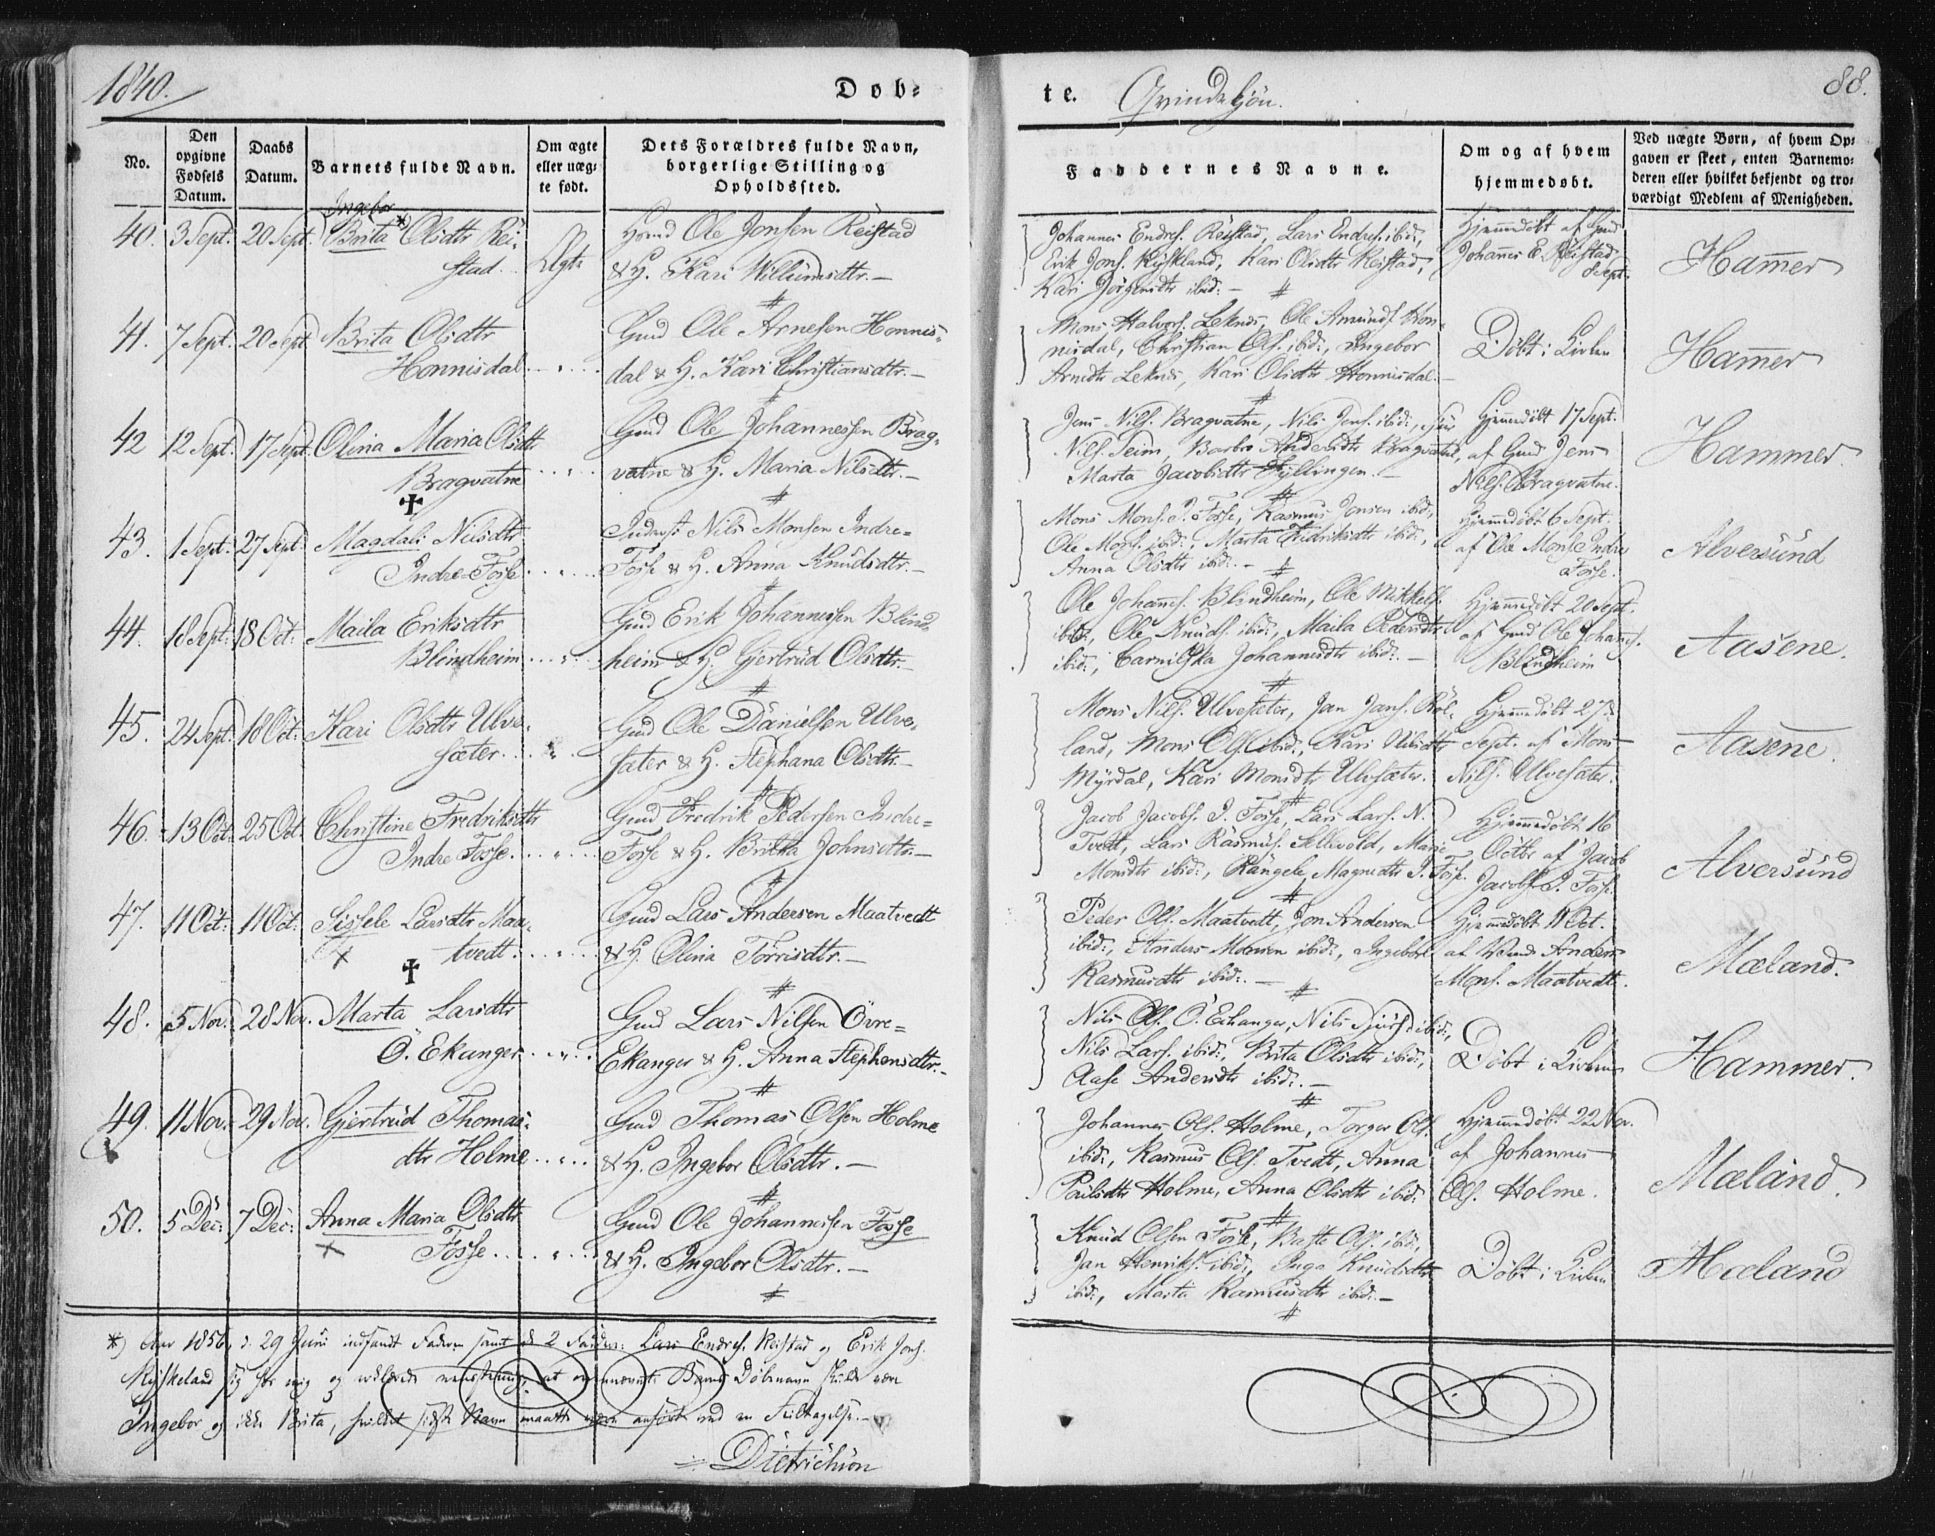 1840.
Dob-
te. Qvindekjön.
88.
No.
Den opgivne Fødsels Datum.
Daabs Datum.
Barnets fulde Navn.
Om ægte eller uægte født.
Dets Forældres fulde Navn, borgerlige Stilling og Opholdssted.
Faddernes Navne.
Om og af hvem hjemmedøbt.
Ved uægte Børn, af hvem Opgaven er skeet, enten Barnemoderen eller hvilket bekjendt og troværdigt Medlem af Menigheden.
Ingebor
40. 3 Sept. 20 Sept. Brita *) Olsdtr Rei-
stad. Ægte
Ole Jonsen Reistad
& H. Kari Willumsdtr.—
Johannes Endres. Reistad, Lars Endres. ibid.,
Erik Jons. Ryskeland, Kari Olsdtr Reistad,
Kari Jörgensdtr ibid.—
Hjemmedöbt af Gmd
Johannes E. Reistad
Sept.
Hammer
41. 7 Sept. 20 Sept. Brita Olsdtr
Honnisdal
Gmd Ole Arnesen Honnis-
dal & H. Kari Christiansdtr.—
Mons Halvors. Leknes, Ole Amunds. Hon-
nisdal, Christian Ols. ibid., Ingebor
Arnedtr Leknes, Kari Olsdtr Honnisdal.
Döbt i Kirken
Hammer
42 12 Sept. 17 Sept. Olina Maria Olsdtr
Bragvatne
Gmd Ole Johannessen Brag-
vatne & H. Maria Nilsdtr.—
Jens Nils. Bragvatne, Nils Jens. ibid., Siur
Nils. Seim, Barbro Andersdtr Bragvatne,
Marta Jacobsdtr Fyllingen.—
Hjemmedöbt 17 Sept.
af Gmd Jens
Nils. Bragvatne.
Hammer.
43. 1 Sept. 27 Sept. Magdali Nilsdtr
Indre-Fosse
Inderst Nils Monsen Indre-
Fosse & H. Anna Knudsdtr.—
Mons Mons. I. Fosse, Rasmus Jonsen ibid.,
Ole Mons. ibid., Marta Fredriksdtr ibid.,
Anna Olsdtr ibid.—
Hjemmedöbt 6 Sept.
af Ole Mons. Indre
Fosse.
Alversund
44. 18 Sept. 18 Oct. Maila Eriksdtr
Blindheim
Gmd Erik Johannessen Blind-
heim & H. Gjertrud Olsdtr.—
Ole Johannes. Blindheim, Ole Mikkels.
ibid., Ole Knuds. ibid., Maila Pedersdtr
ibid., Carnilska Johannesdtr ibid.—
Hjemmedöbt 20 Sept.
af Gmd Ole Johannes.
Blindheim
Aasene.
45. 24 Sept. 18 Oct. Kari Olsdtr Ulve-
sæter.
Gmd Ole Danielsen Ulve-
sæter & H. Stephana Olsdtr.—
Mons Nils. Ulvesæter, Jan Jans. Röl-
land, Mons Ols. ibid., Kari Nilsdtr
Myrdal, Kari Monsdtr Ulvesæter.
Hjemmedöbt 27
Sept. af Mons
Nils. Ulvesæter.
Aasene.
46. 13 Oct. 25 Oct. Christine Fredriksdtr
Indre Fosse.
Gmd Fredrik Pedersen Indre-
Fosse & H. Britha Johnsdtr.—
Jacob Jacobs. I. Fosse, Lars Lars. N.
Tvedt, Lars Rasmus. Sellevold, Marie
Monsdtr ibid., Rangele Magnedtr I. Fosse.
Hjemmedöbt 16
Octbr af Jacob
Jacobs. I. Fosse.
Alversund
47. 11 Oct. 11 Oct. Sissele Larsdtr Maa-
tvedt.
Gmd Lars Andersen Maatvedt
& H. Olina Torrisdtr.—
Peder Ols. Maatvedt, Jon Andersen
ibid., Anders Monsen ibid., Ingebor
Rasmusdtr ibid.—
Hjemmedöbt 11 Oct.
af Anders
Mons. Maatvedt.
Mæland.
48. 5 Nov. 28 Nov. Marta Larsdtr
Ö. Ekanger.
Gmd Lars Nilsen Övre-
Ekanger & H. Anna Stephensdtr.—
Nils Ols. Ö. Ekanger, Nils Siurs. ibid.,
Nils Lars. ibid., Brita Olsdtr ibid.,
Aase Andersdtr ibid.—
Döbt i Kirken
Hammer.
49. 11 Nov. 29 Nov. Gjertrud Thomas-
dtr Holme
Gmd Thomas Olsen Holme
& H. Ingebor Olsdtr.—
Johannes Ols. Holme, Torger Ols.
ibid., Rasmus Ols. Tvedt, Anna
Poulsdtr Holme, Anna Olsdtr ibid.
Hjemmedöbt 22 Nov.
af Johannes
Ols. Holme.
Mæland.
50. 5 Dec. 7 Dec. Anna Maria Olsdtr
Fosse
Gmd Ole Johannessen Fosse
& H. Ingebor Olsdtr.—
Knud Olsen Fosse, Baste Ols. ibid.,
Jan Henriks. ibid., Inga Knudsdtr
ibid., Marta Rasmusdtr ibid.—
Döbt i Kirken
Mæland
*) Aar 1856, d. 29 Juni indfandt Faderen samt de 2 Faddere: Lars Endres. Reistad og Erik Jons.
Ryskeland sig for mig og at Barns Döbenavn skulde være
Ingebor og ikke Brita, hvilket sidste Navn maatte være anfört ved en Feiltagelse.—
Dietrichson